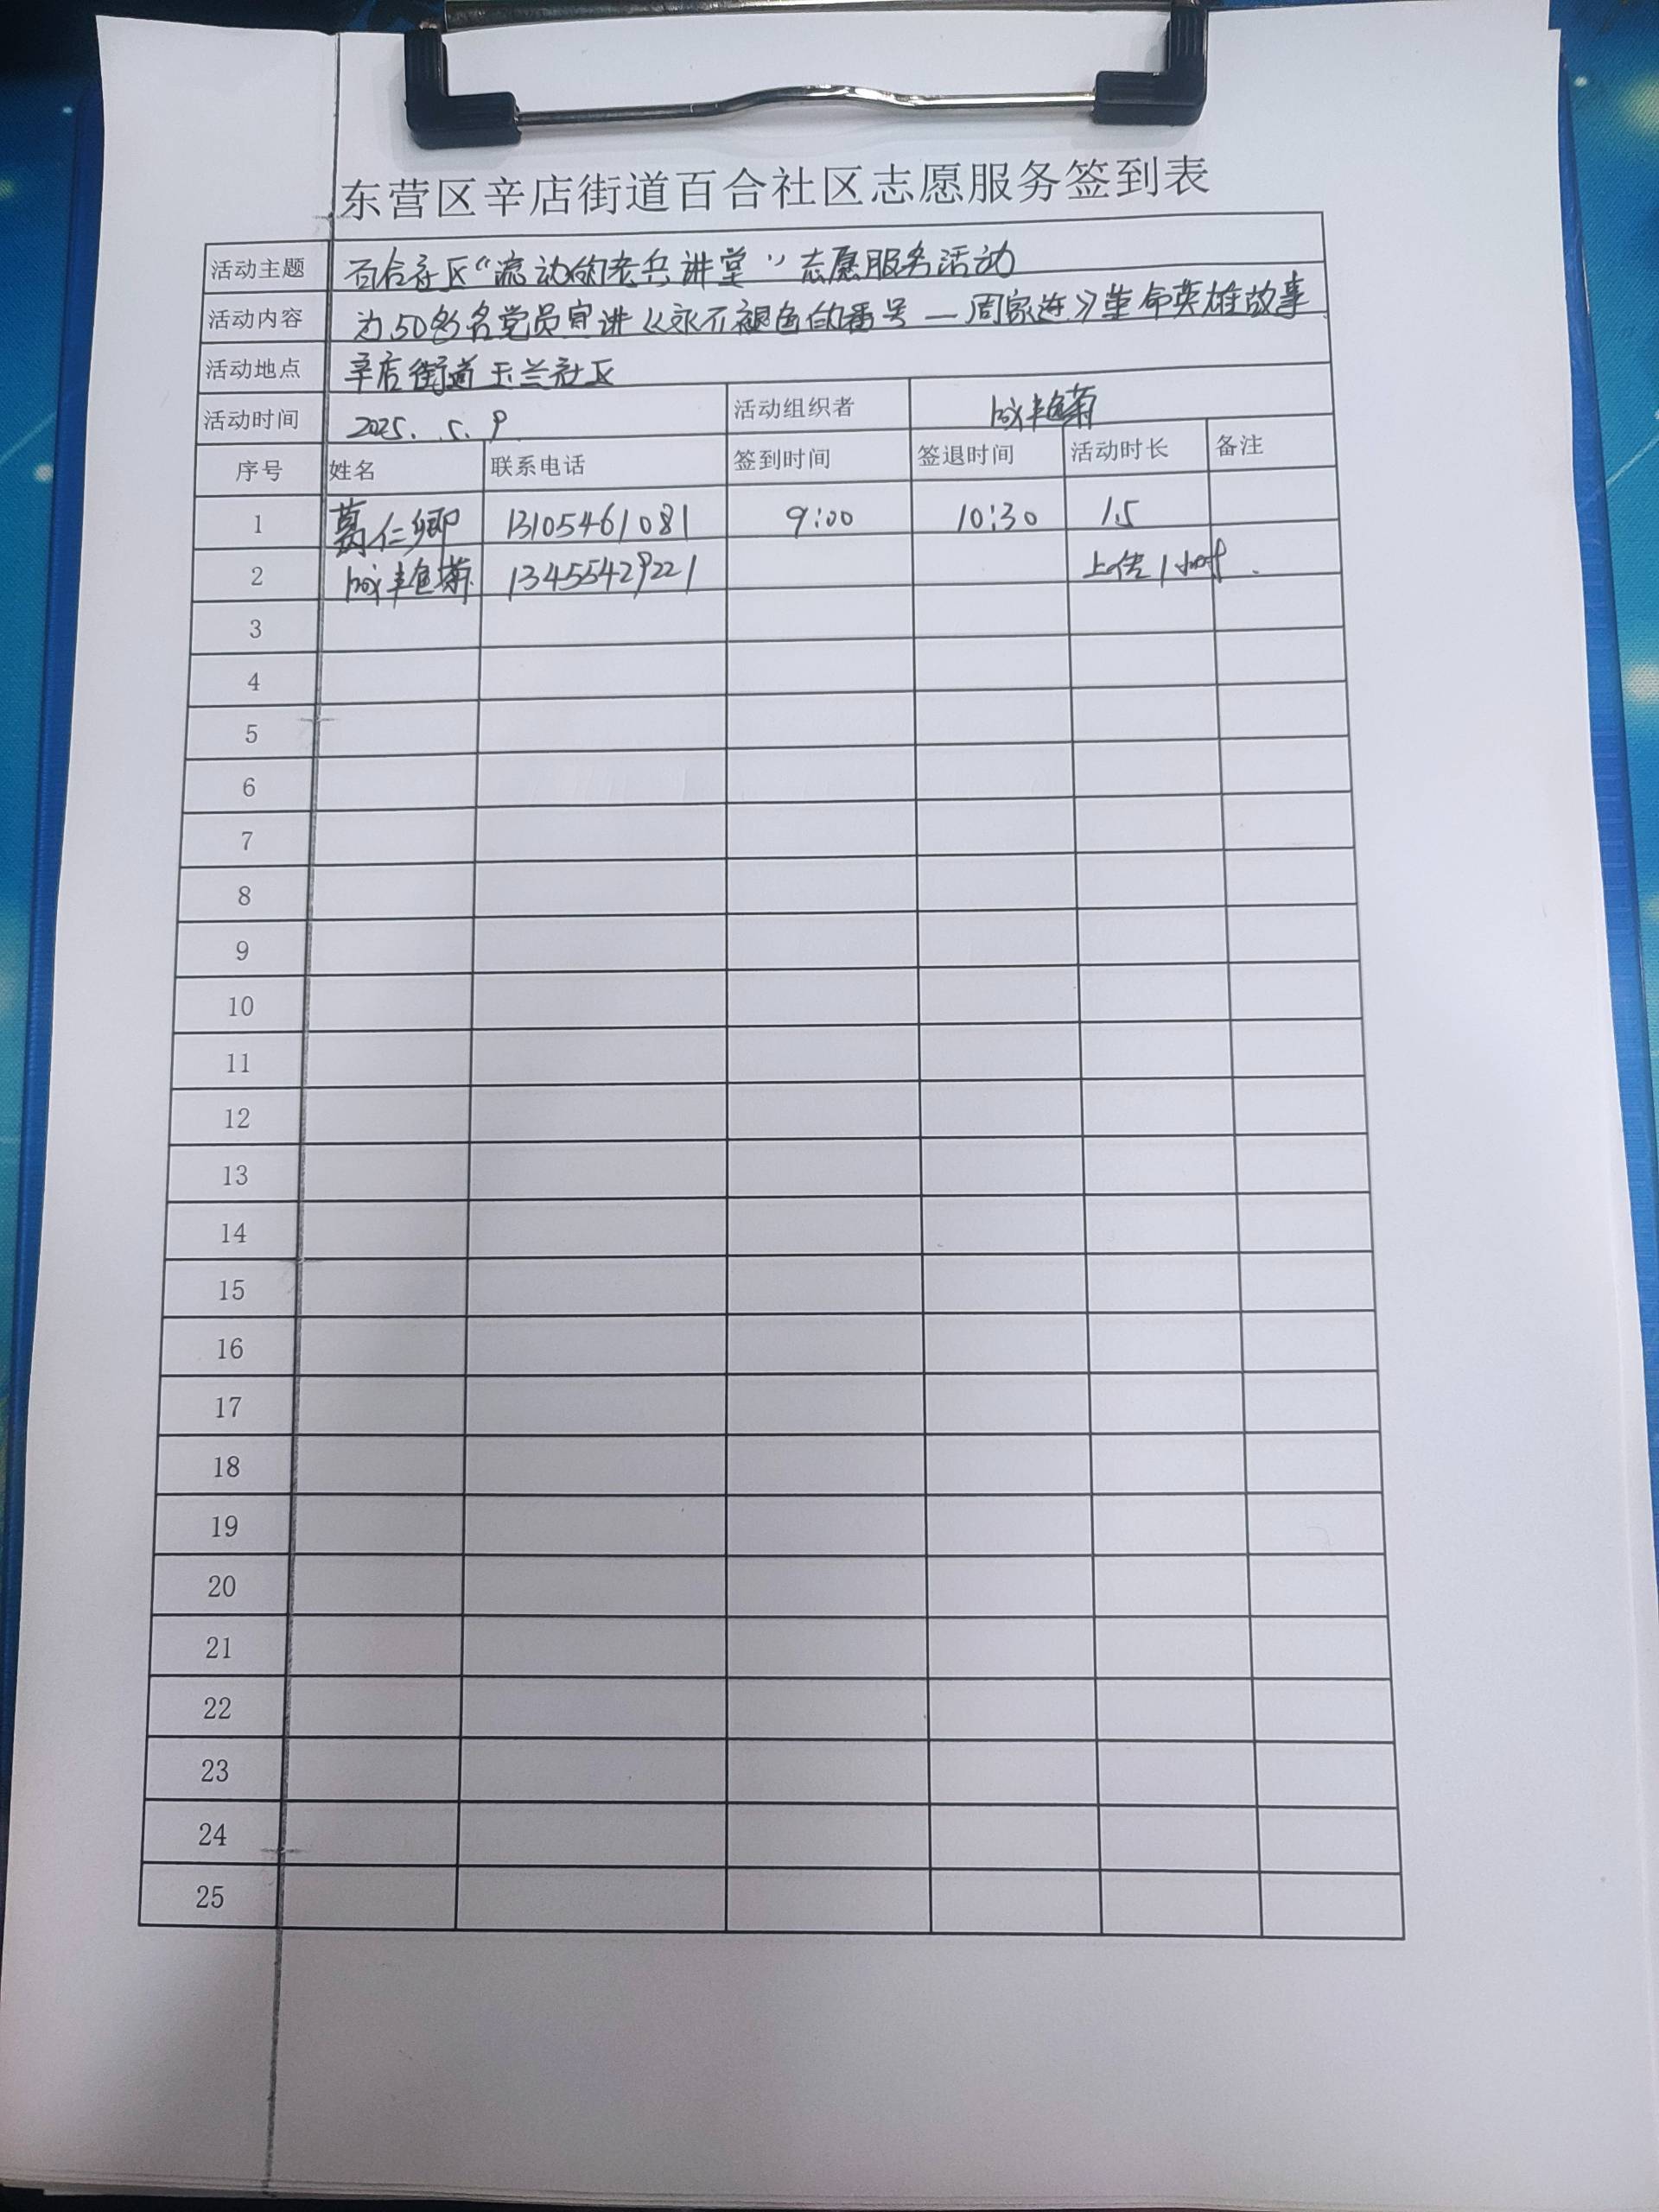 东营区辛店街道百合社区志愿服务签到表
活动主题 百合社区“流动的老兵讲堂”志愿服务活动
活动内容 为50多名党员宣讲《永不褪色的番号—周家连》革命英雄故事
活动地点 辛店街道玉兰社区
活动时间 2025.5.9 活动组织者 艳菊
序号 姓名 联系电话 签到时间 签退时间 活动时长 备注
1 葛仁卿 13105461081 9:00 10:30 1.5
2 艳菊 13455429221 上传1小时.
3
4
5
6
7
8
9
10
11
12
13
14
15
16
17
18
19
20
21
22
23
24
25